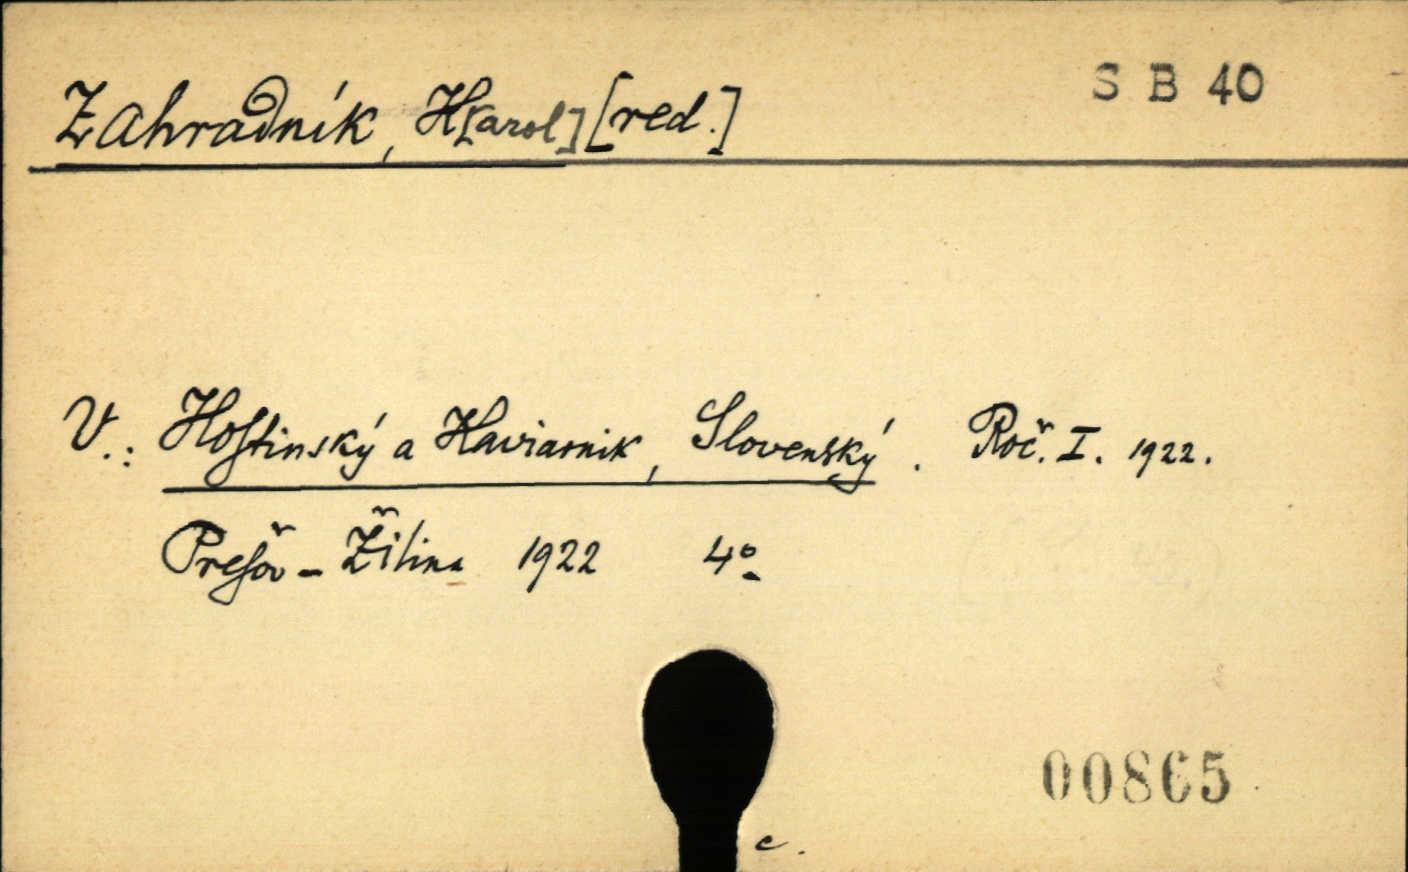 Zahradník, K[arol] [red.]
S B 40
V.: Hostinský a Kaviarnik, Slovenský. Roč. I. 1922.
Prešov - Žilina 1922 4°
00865
c.